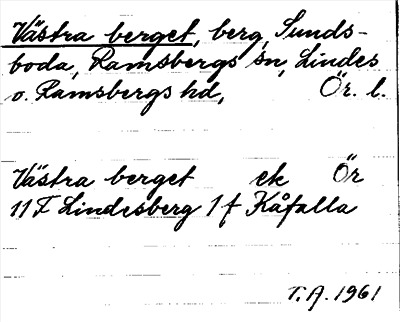 Västra berget, berg, Sunds-
boda, Ramsbergs sn, Lindes
o. Ramsbergs hd, Ör. l.
Västra berget ek Ör
11 F Lindesberg 1 f Kåfalla
T.A. 1961